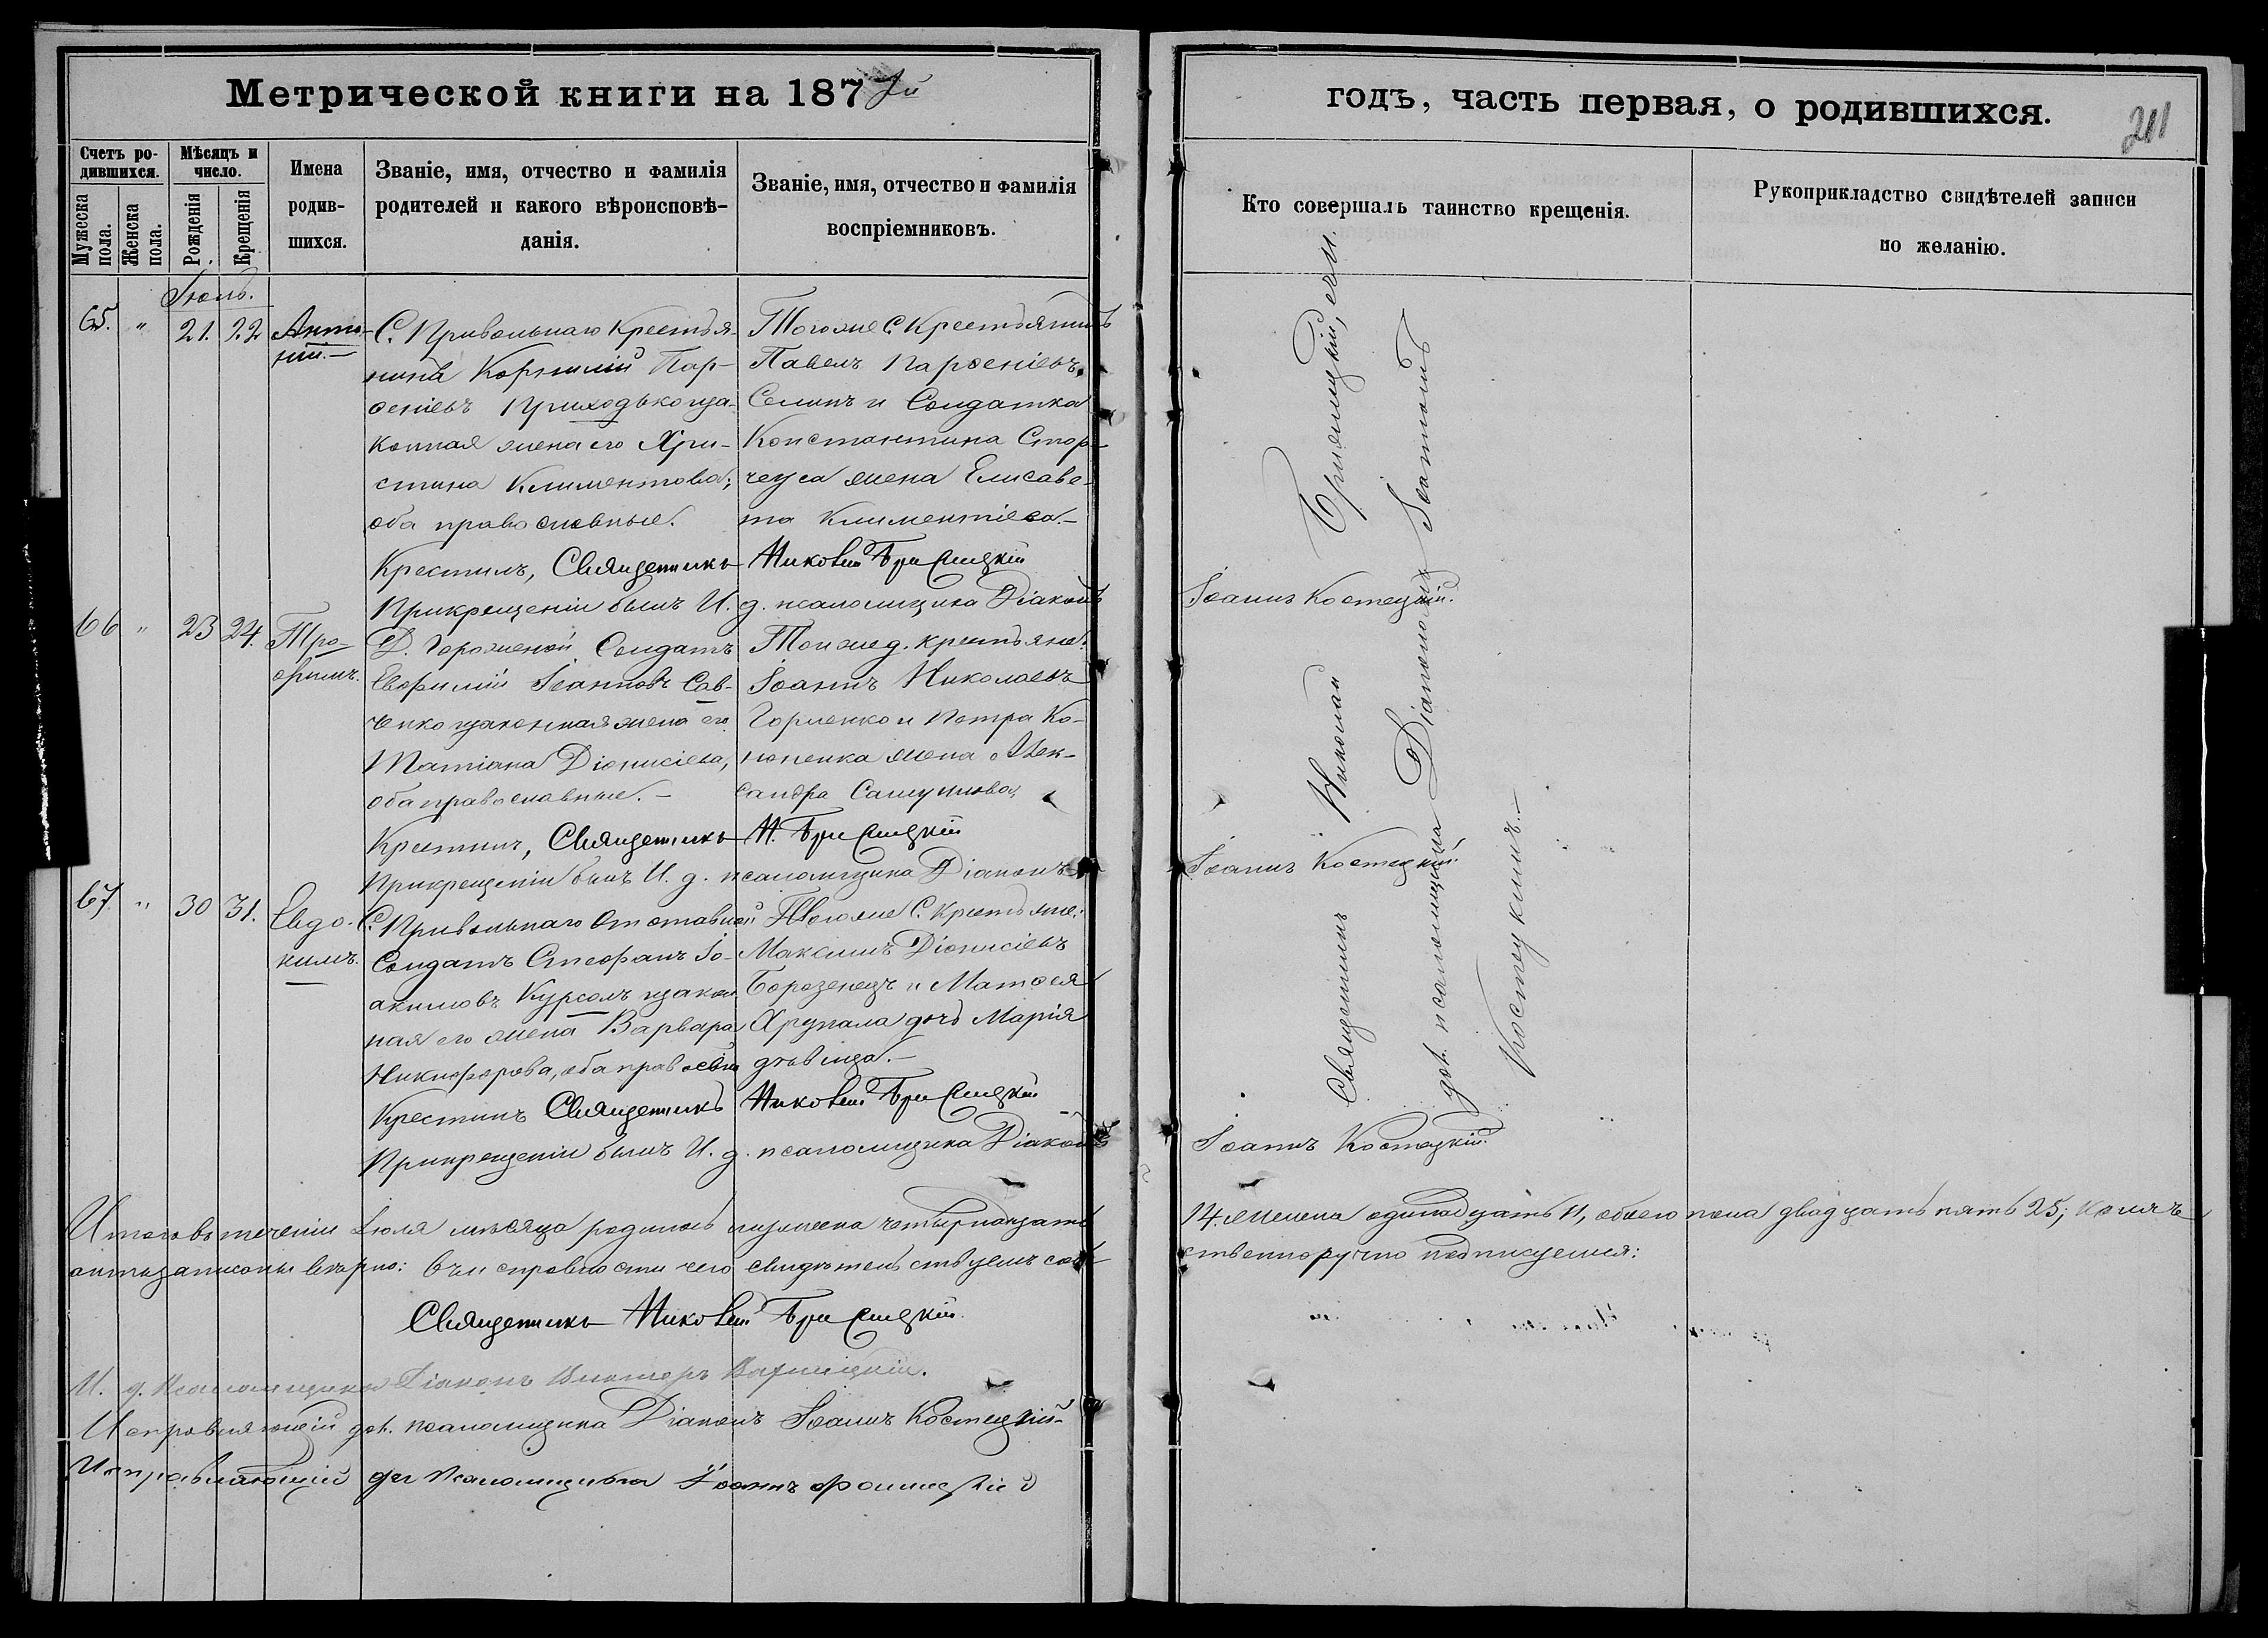 Метрической книги на 187
годъ, часть первая, о родившихся.
211
Счетъ ро-
дившихся.
Мужеска
пола.
Женска
пола.
Мѣсяцъ и
число.
Рожденія
Крещенія
Имена
родив-
шихся.
Званіе, имя, отчество и фамилія
родителей и какого вѣроисповѣ-
данія.
Званіе, имя, отчество и фамилія
воспріемниковъ.
Кто совершалъ таинство крещенія.
Рукоприкладство свидѣтелей записи
по желанію.
Іюль.
65. " 21. 22
Анто-
ній.-
С. Привольнаго Крестья-
нинъ Корнилій Пар-
ѳеніевъ Приходько иза-
конная жена его Хри-
стина Климентова;
оба православные.
Тогоже С. Крестьянинъ
Павелъ Парѳеніевъ
Солдатка
Константина Стор-
чеуса жена Елисаве-
та Климентіева.-
Крестилъ, Священникъ Николай Бржесицкій
Прикрещеніи былъ И. д. псаломщика Діаконъ Іоаннъ Костецкій.
66 " 23 24.
Тро-
фимъ.
Д. Солдатъ
Евфимій Іоанновъ Сав-
ченко изаконная жена его
Татіана Діонисіева,
оба православные.-
Тойже д. крестьяне:
Іоаннъ Николаевъ
Горленко и Петра Ко-
ноненка жена Алек-
сандра
Крестилъ, Священникъ Н. Бржесицкій
Прикрещеніи былъ И. д. псаломщика Діаконъ Іоаннъ Костецкій.
67 " 30 31.
Евдо-
кимъ.
С. Привольнаго Отставной
Солдатъ Стефанъ Іо-
акимовъ Курсолъ изакон-
ная его жена Варвара
Никифорова, оба правосл.
Тогоже С. Крестьяне:
Максимъ Діонисіевъ
Борозенецъ и Матѳея
Хрупала дочь Марія
дѣвица.-
Крестилъ Священникъ Николай Бржесицкій
Прикрещеніи былъ И. д. псаломщика Діаконъ Іоаннъ Костецкій.
Священникъ Николай Бржесицкій, сти.
дол. псаломщика Діаконъ Іоаннъ
Костецкимъ.-
Итого въ теченіи Іюля мѣсяца родилось мужеска четырнадцать 14 женска одинадцать 11, обоего пола двадцать пять 25; коихъ
акты записаны вѣрно: Въ исправности чего свидѣтельствуемъ соб-
ственноручно подписуемся:
Священникъ Николай Бржесицкій.
И. д. Псаломщика Діаконъ Викторъ
Исправляющій дол. псаломщика Діаконъ Іоаннъ Костецкій.
Исправляющій дол псаломщика Іоаннъ